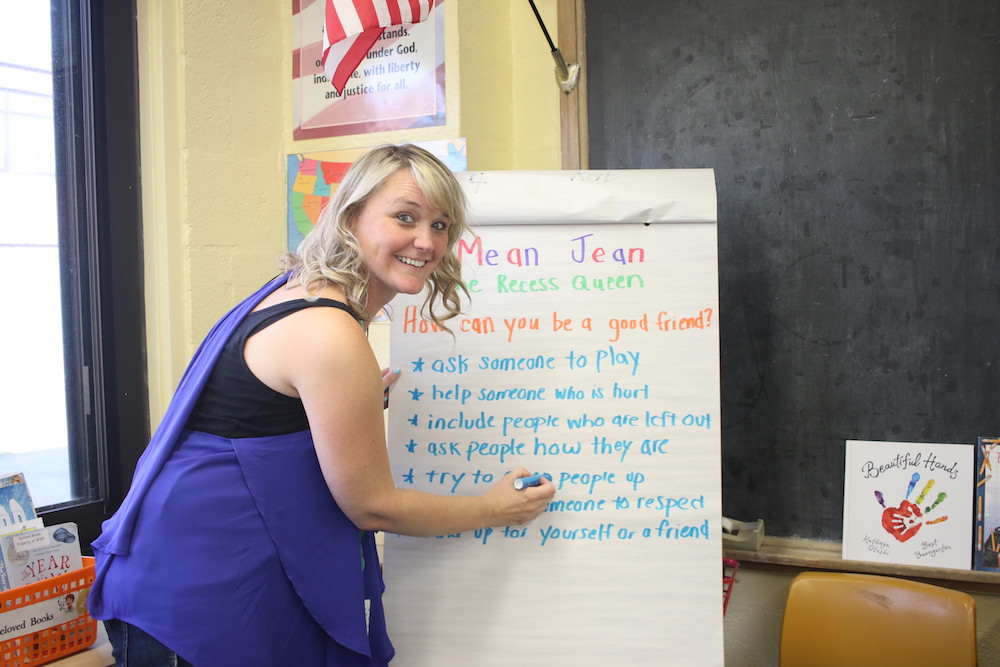 stands,
under God,
with liberty
and justice for all.
Mean Jean
Recess Queen
How can you be a good friend?
* ask someone to play
* help someone who is hurt
* include people who are left out
* ask people how they are
* try to people up
someone to respect
up for yourself or a friend
Beautiful Hands
Kathryn Otoshi
Bret Baumgarten
YEAR
eloved Books